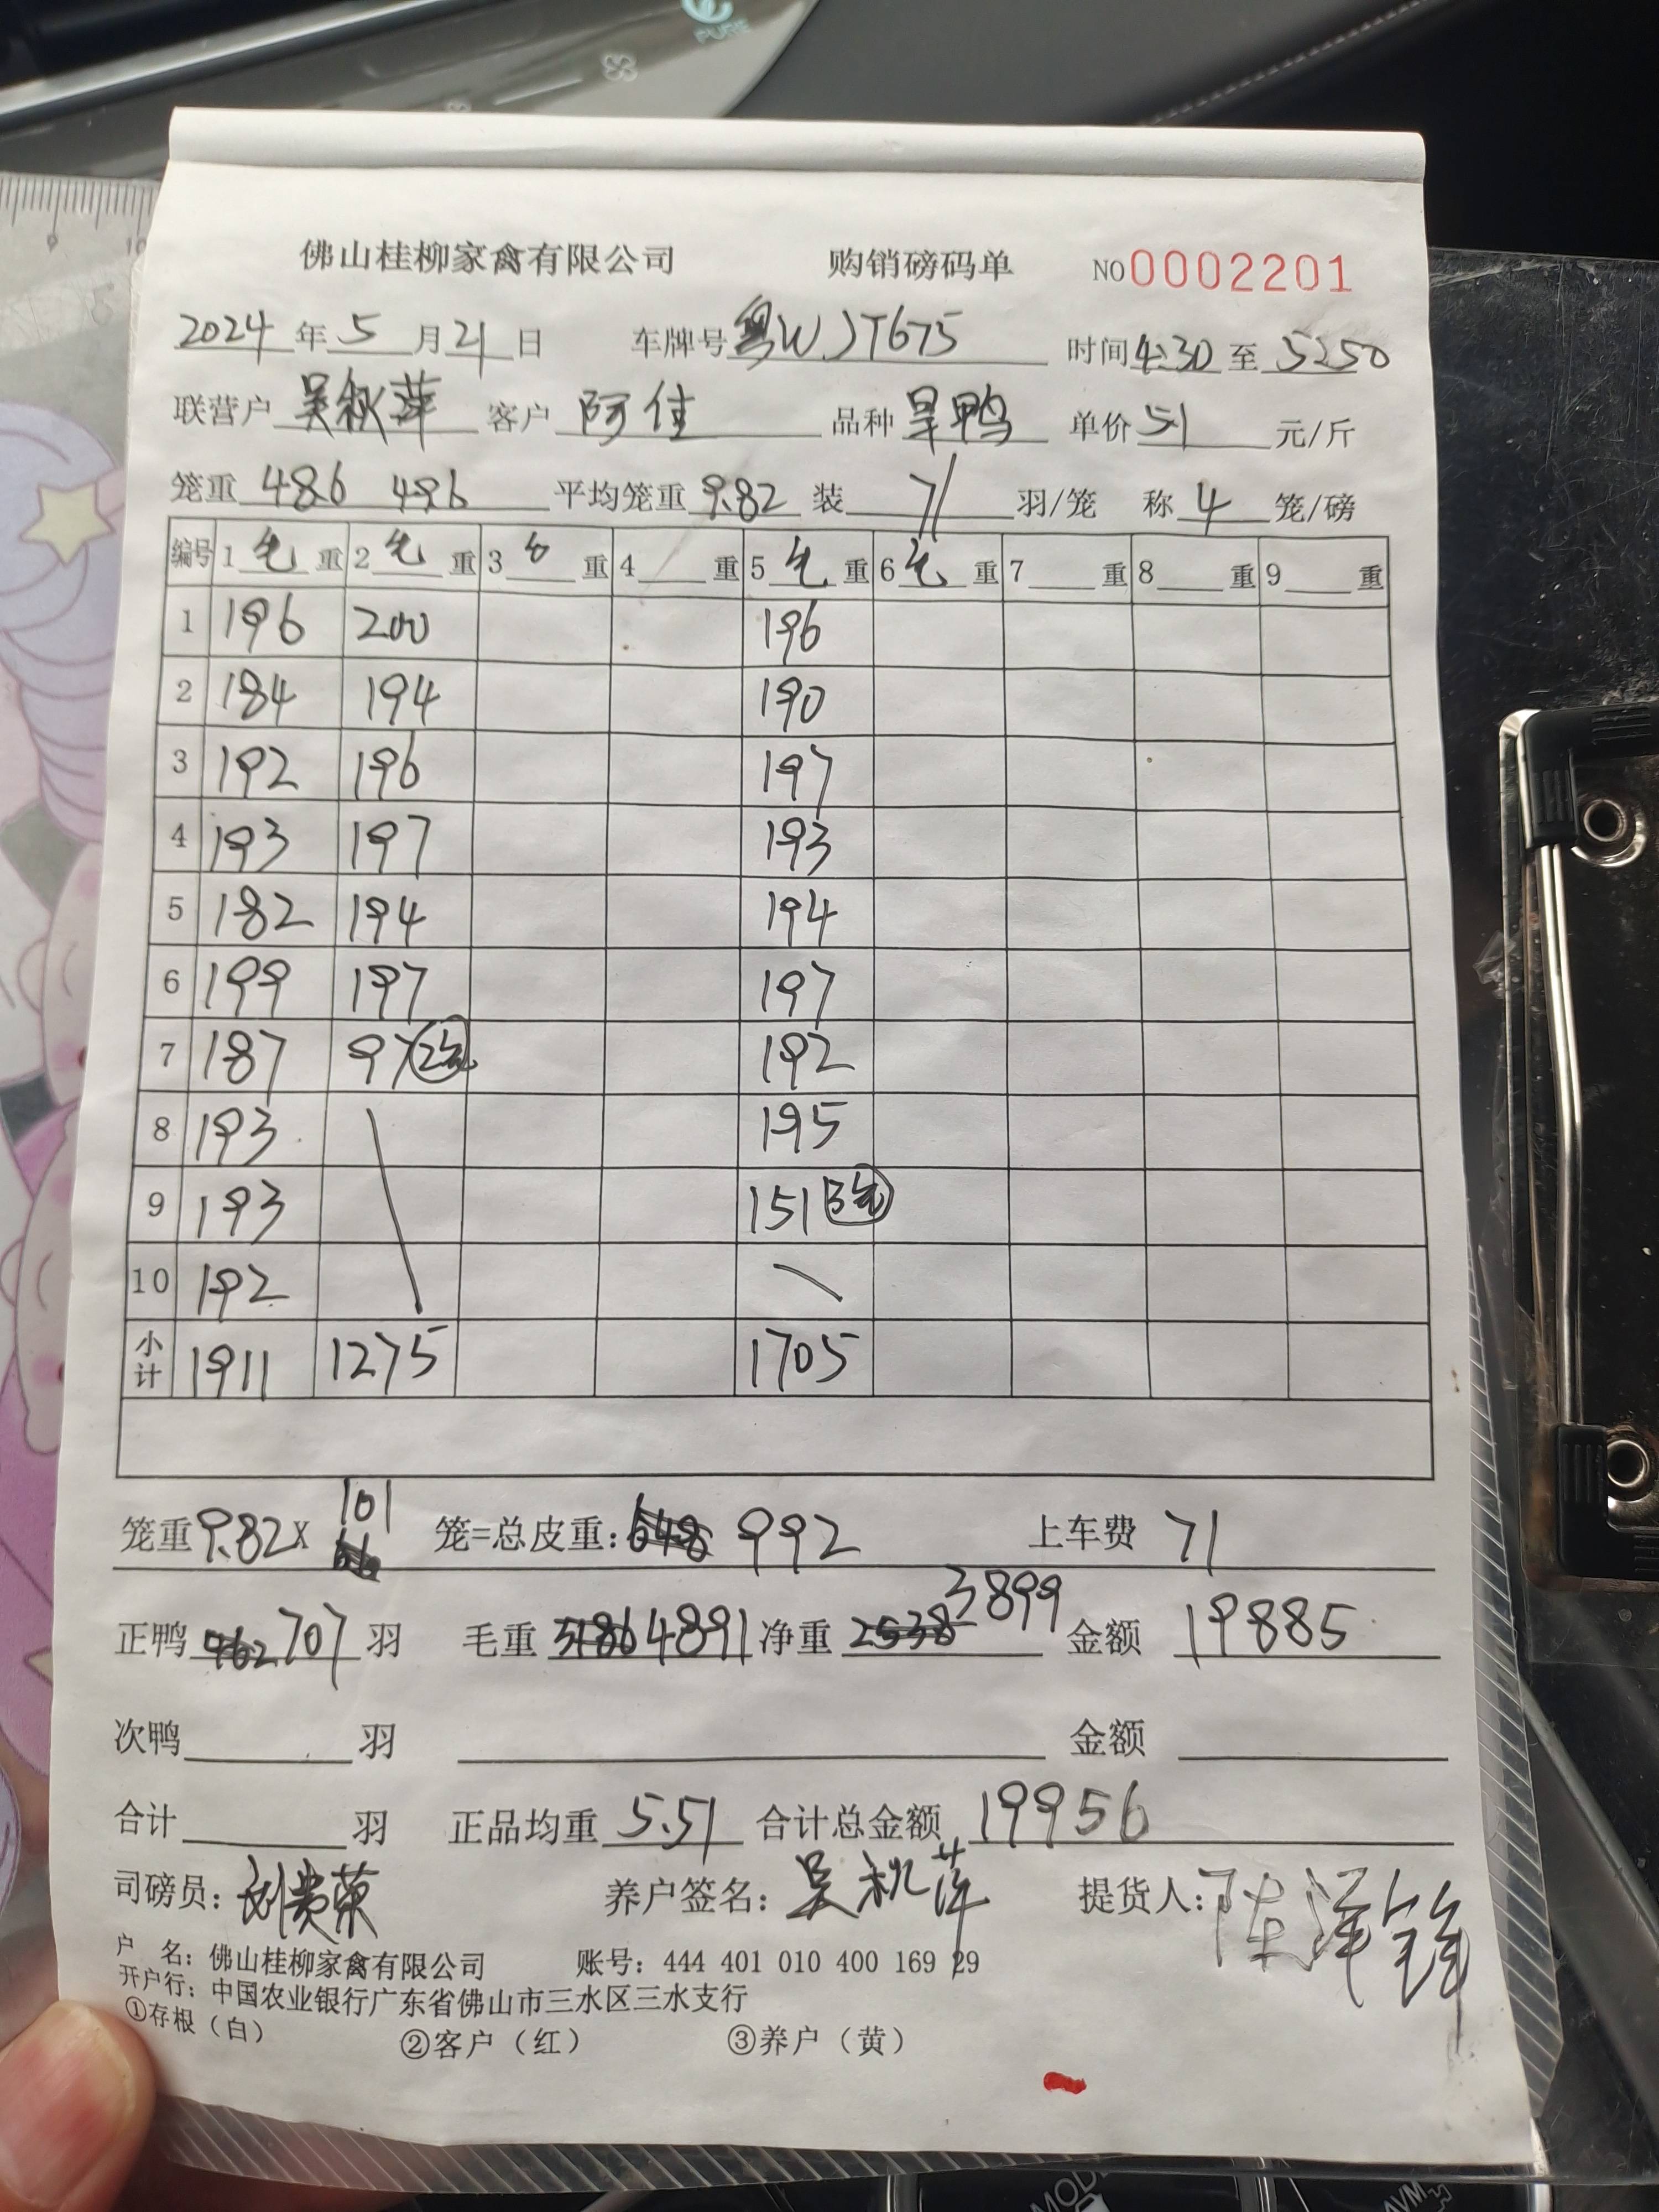 PURE
佛山桂柳家禽有限公司 购销磅码单 NO 0002201
2024 年 5 月 21 日 车牌号 粤WJT675 时间 4:30 至 5:50
联营户 吴秋萍 客户 阿佳 品种 旱鸭 单价 5.1 元/斤
笼重 48.6 49.6 平均笼重 9.82 装 7 羽/笼 称 4 笼/磅
编号 1 毛 重 2 毛 重 3 重 4 重 5 毛 重 6 毛 重 7 重 8 重 9 重
1 196 200 196
2 184 194 190
3 192 196 197
4 193 197 193
5 182 194 194
6 199 197 197
7 187 97 192
8 193 195
9 193 151
10 192
小计 1911 1275 1705
笼重 9.82 X 101 笼=总皮重: 648 992 上车费 71
正鸭 462 707 羽 毛重 3186 4891 净重 2538 3899 金额 19885
次鸭 羽 金额
合计 羽 正品均重 5.51 合计总金额 19956
司磅员: 刘贵荣 养户签名: 吴秋萍 提货人: 陈泽锋
户 名: 佛山桂柳家禽有限公司 账号: 444 401 010 400 169 29
开户行: 中国农业银行广东省佛山市三水区三水支行
①存根（白） ②客户（红） ③养户（黄）